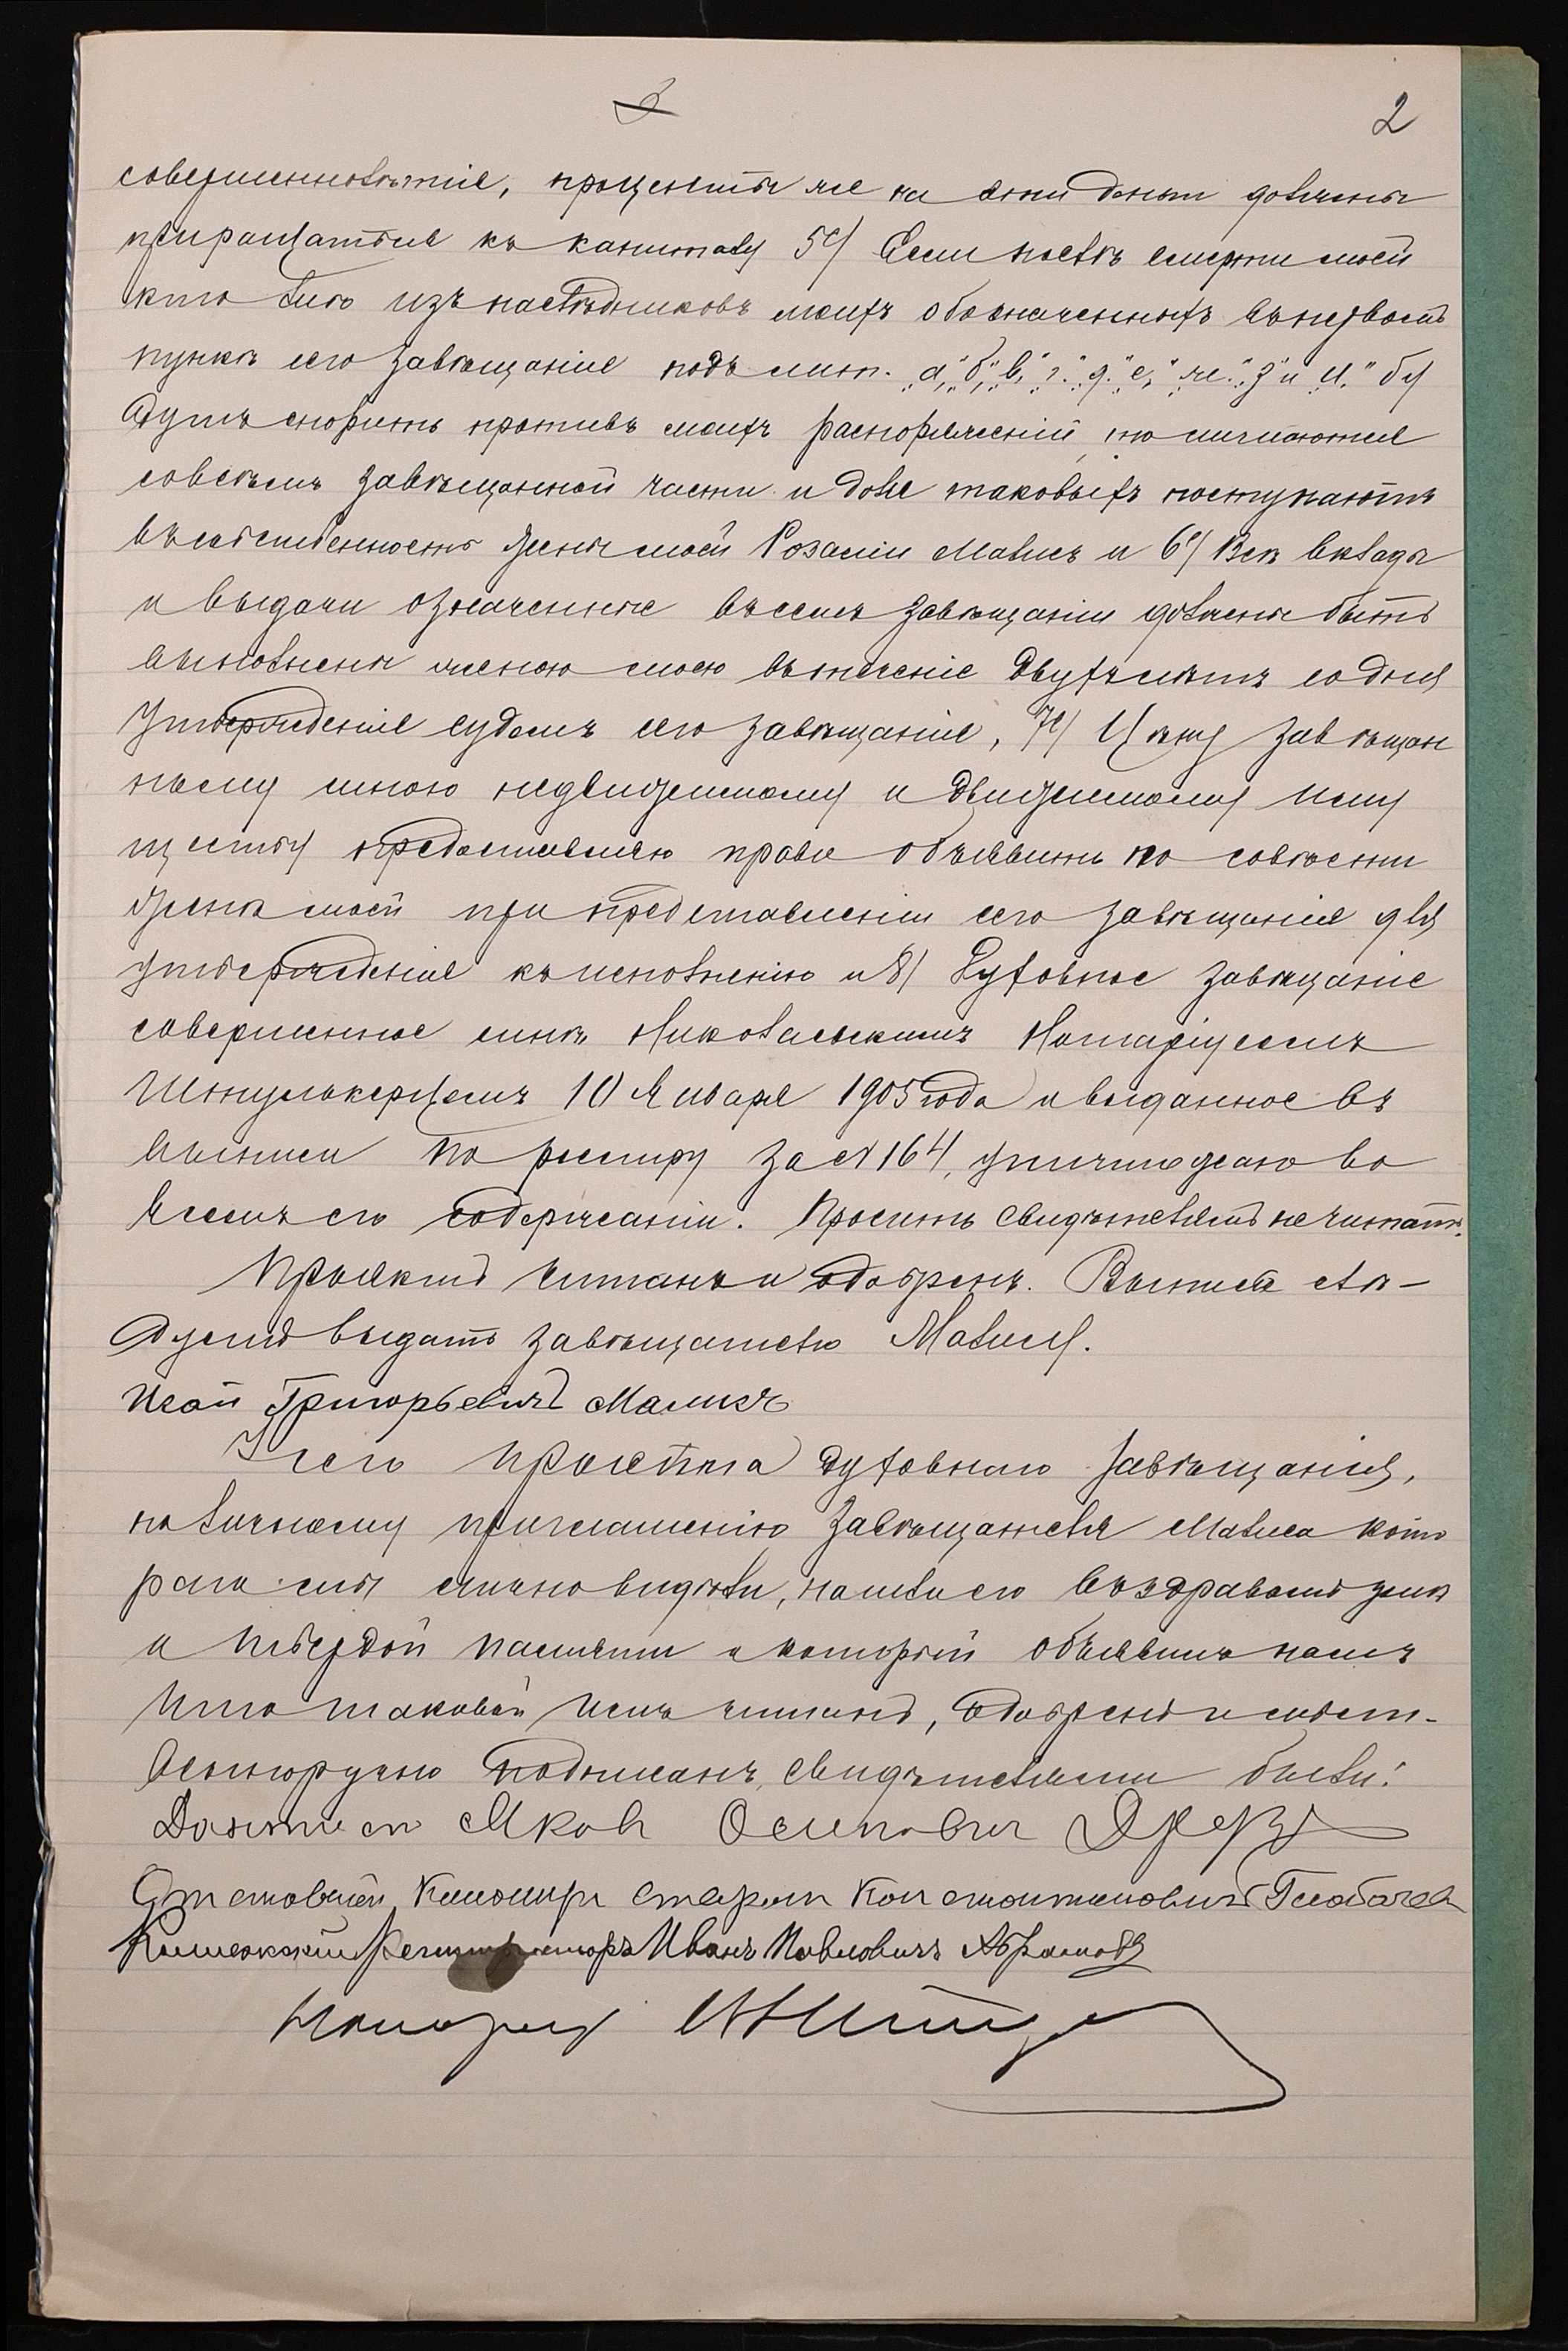 2
совершеннолѣтія, проценты же на эти деньги должны
приращаться къ капиталу 5е/ Если послѣ смерти моей
кто либо изъ наслѣдниковъ моихъ обозначенныхъ въ первомъ
пунктѣ сего завѣщанія подъ лит. „а,“ „б,“ „в,“ „г.“ „д.“ „е,“ „ж.“ „з“ и „и.“ бу
дутъ спорить противъ моихъ распоряженій, то лишаются
совсѣмъ завѣщанной части и доля таковыхъ поступаютъ
въ собственность жены моей Розаліи Малисъ и 6е/ Всѣ вклады
и выдачи означенные въ семъ завѣщаніи должны быть
выполнены женою моею въ теченіе двухъ лѣтъ со дня
утвержденія судомъ сего завѣщанія, 7е/ Цѣну завѣщан
ному мною недвижимому и движимому иму
ществу предоставляю право объявить по совѣсти
женѣ моей при представленіи сего завѣщанія для
утвержденія къ исполненію и 8/ Духовное завѣщаніе
совершенное мною Николаевскимъ Нотаріусомъ
10 Января 1905 года и выданное въ
выписи по реестру за № 164, уничтожаю во
всемъ его содержаніи. Проситъ свидѣтелямъ не читать.
Проектъ читанъ и одобренъ. Выпись слѣ-
дуетъ выдать завѣщателю Малису.
Исай Григорьевичъ Малисъ
У сего проекта духовнаго завѣщанія,
по личному приглашенію завѣщателя Малиса кото
раго мы лично видѣли, нашли его въ здравомъ умѣ
и твердой памяти и который объявилъ намъ
что таковой имъ читанъ, одобренъ и собст-
венноручно подписанъ, свидѣтелями были:
Дантистъ Яковъ Осиповичъ
Отставной Кононир Константиновичъ
Коллежскій Регистраторъ Иванъ Павловичъ Абрамовъ
Нотаріусъ